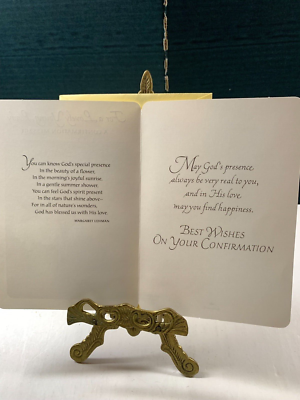 You can know God's special presence
In the beauty of a flower,
In the morning's joyful sunrise,
In a gentle summer shower.
You can feel God's spirit present
In the stars that shine above—
For in all of nature's wonders,
God has blessed us with His love.
May God's presence
always be very real to you,
and in His love,
may you find happiness.
BEST WISHES
ON YOUR CONFIRMATION